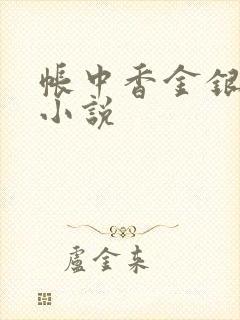 帳中香金銀
小說
盧金來